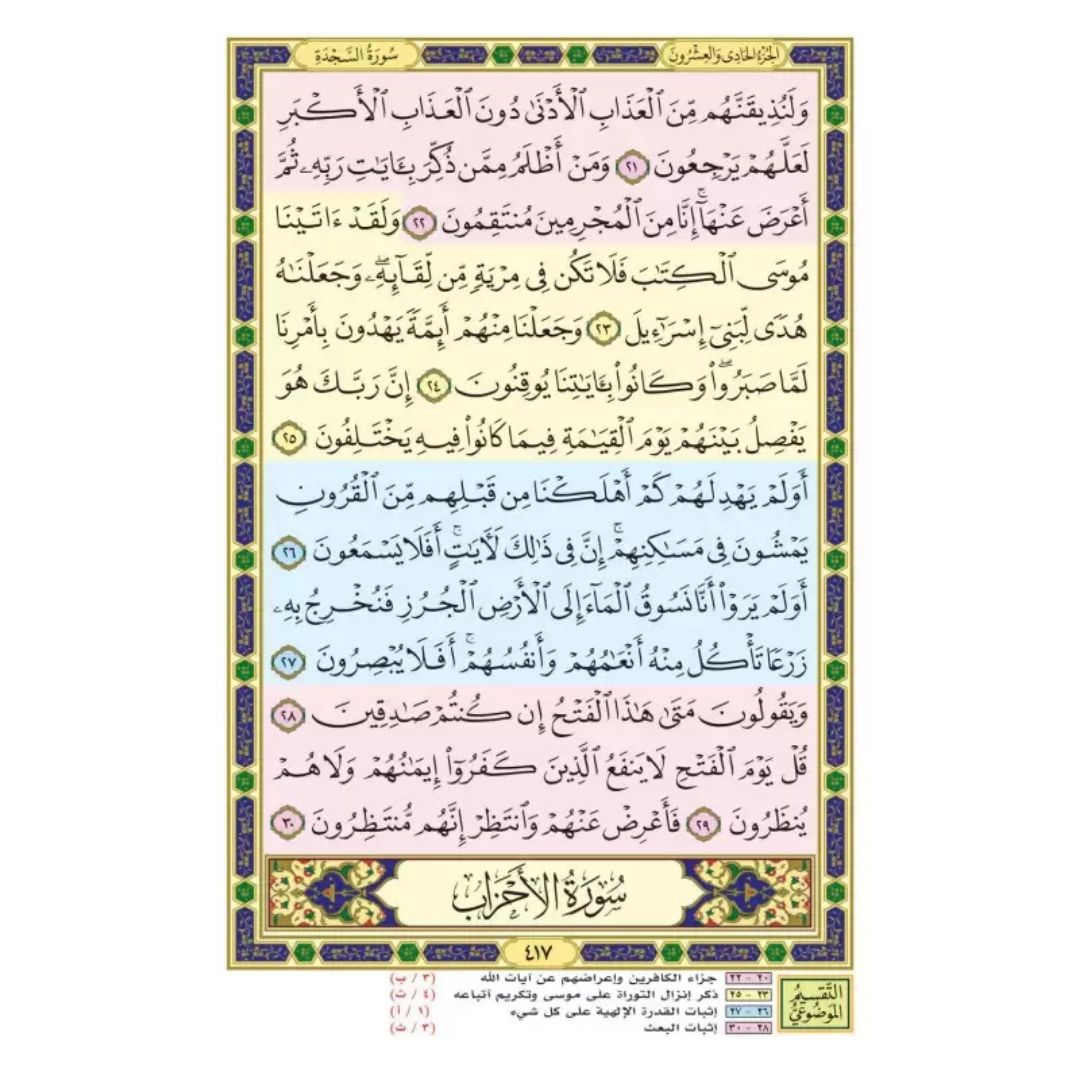 الجُزءُ الحَادِي وَالعِشْرُونَ
سُورَةُ السَّجْدَةِ
وَلَنُذِيقَنَّهُم مِّنَ ٱلْعَذَابِ ٱلْأَدْنَىٰ دُونَ ٱلْعَذَابِ ٱلْأَكْبَرِ
لَعَلَّهُمْ يَرْجِعُونَ ٢١ وَمَنْ أَظْلَمُ مِمَّن ذُكِّرَ بِـَٔايَٰتِ رَبِّهِۦ ثُمَّ
أَعْرَضَ عَنْهَآ ۚ إِنَّا مِنَ ٱلْمُجْرِمِينَ مُنتَقِمُونَ ٢٢ وَلَقَدْ ءَاتَيْنَا
مُوسَى ٱلْكِتَٰبَ فَلَا تَكُن فِى مِرْيَةٍ مِّن لِّقَآئِهِۦ ۖ وَجَعَلْنَٰهُ
هُدًى لِّبَنِىٓ إِسْرَٰٓءِيلَ ٢٣ وَجَعَلْنَا مِنْهُمْ أَئِمَّةً يَهْدُونَ بِأَمْرِنَا
لَمَّا صَبَرُوا۟ ۖ وَكَانُوا۟ بِـَٔايَٰتِنَا يُوقِنُونَ ٢٤ إِنَّ رَبَّكَ هُوَ
يَفْصِلُ بَيْنَهُمْ يَوْمَ ٱلْقِيَٰمَةِ فِيمَا كَانُوا۟ فِيهِ يَخْتَلِفُونَ ٢٥
أَوَلَمْ يَهْدِ لَهُمْ كَمْ أَهْلَكْنَا مِن قَبْلِهِم مِّنَ ٱلْقُرُونِ
يَمْشُونَ فِى مَسَٰكِنِهِمْ ۚ إِنَّ فِى ذَٰلِكَ لَـَٔايَٰتٍ ۚ أَفَلَا يَسْمَعُونَ ٢٦
أَوَلَمْ يَرَوْا۟ أَنَّا نَسُوقُ ٱلْمَآءَ إِلَى ٱلْأَرْضِ ٱلْجُرُزِ فَنُخْرِجُ بِهِۦ
زَرْعًا تَأْكُلُ مِنْهُ أَنْعَٰمُهُمْ وَأَنفُسُهُمْ ۚ أَفَلَا يُبْصِرُونَ ٢٧
وَيَقُولُونَ مَتَىٰ هَٰذَا ٱلْفَتْحُ إِن كُنتُمْ صَٰدِقِينَ ٢٨
قُلْ يَوْمَ ٱلْفَتْحِ لَا يَنفَعُ ٱلَّذِينَ كَفَرُوٓا۟ إِيمَٰنُهُمْ وَلَا هُمْ
يُنظَرُونَ ٢٩ فَأَعْرِضْ عَنْهُمْ وَٱنتَظِرْ إِنَّهُم مُّنتَظِرُونَ ٣٠
سُورَةُ الأَحْزَابِ
٤١٧
التَّقْسِيمُ
المَوْضُوعِيُّ
٢٠ - ٢٢ جزاء الكافرين وإعراضهم عن آيات الله (٣ / ب)
٢٣ - ٢٥ ذكر إنزال التوراة على موسى وتكريم أتباعه (٤ / ت)
٢٦ - ٢٧ إثبات القدرة الإلهية على كل شيء (١ / أ)
٢٨ - ٣٠ إثبات البعث (٣ / ث)